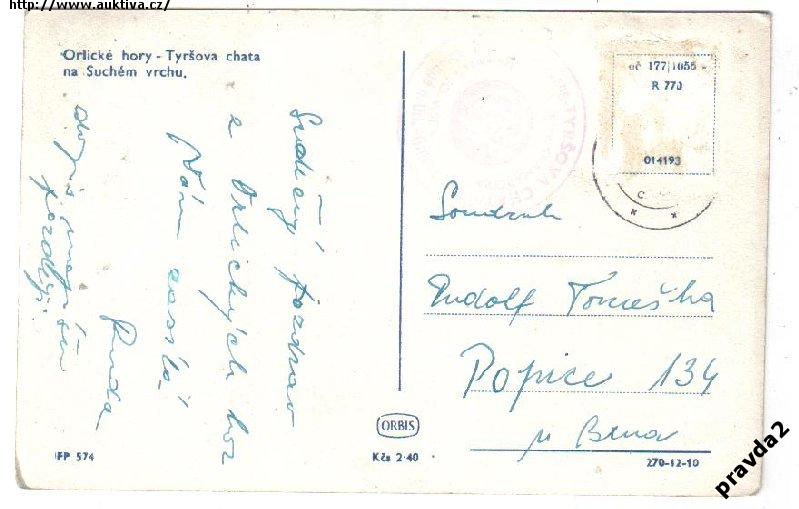 http://www.auktiva.cz/
Orlické hory - Tyršova chata
na Suchém vrchu.
Srdečný pozdrav
z Orlických hor
Vám zasílá
Ruda
dopis napíšu
později.
TYRŠOVA CH
oč 177/1055
R 770
014193
Soudruh
Rudolf Tomeška
Popice 134
u Brna
ORBIS
IFP 574
Kčs 2·40
270-12-10
pravda2